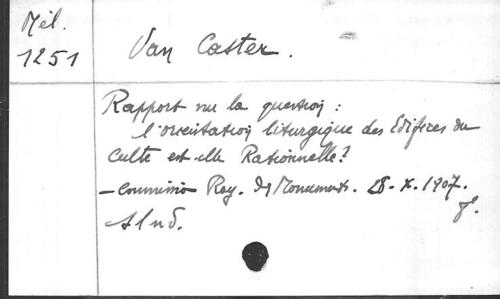 Mél.
1251
Van Caster.
Rapport sur la question :
l'orientation liturgique des Edifices du
Culte est-elle Rationnelle?
- Commissio Roy. des Monuments. 28. X. 1907.
f°.
S l n d.